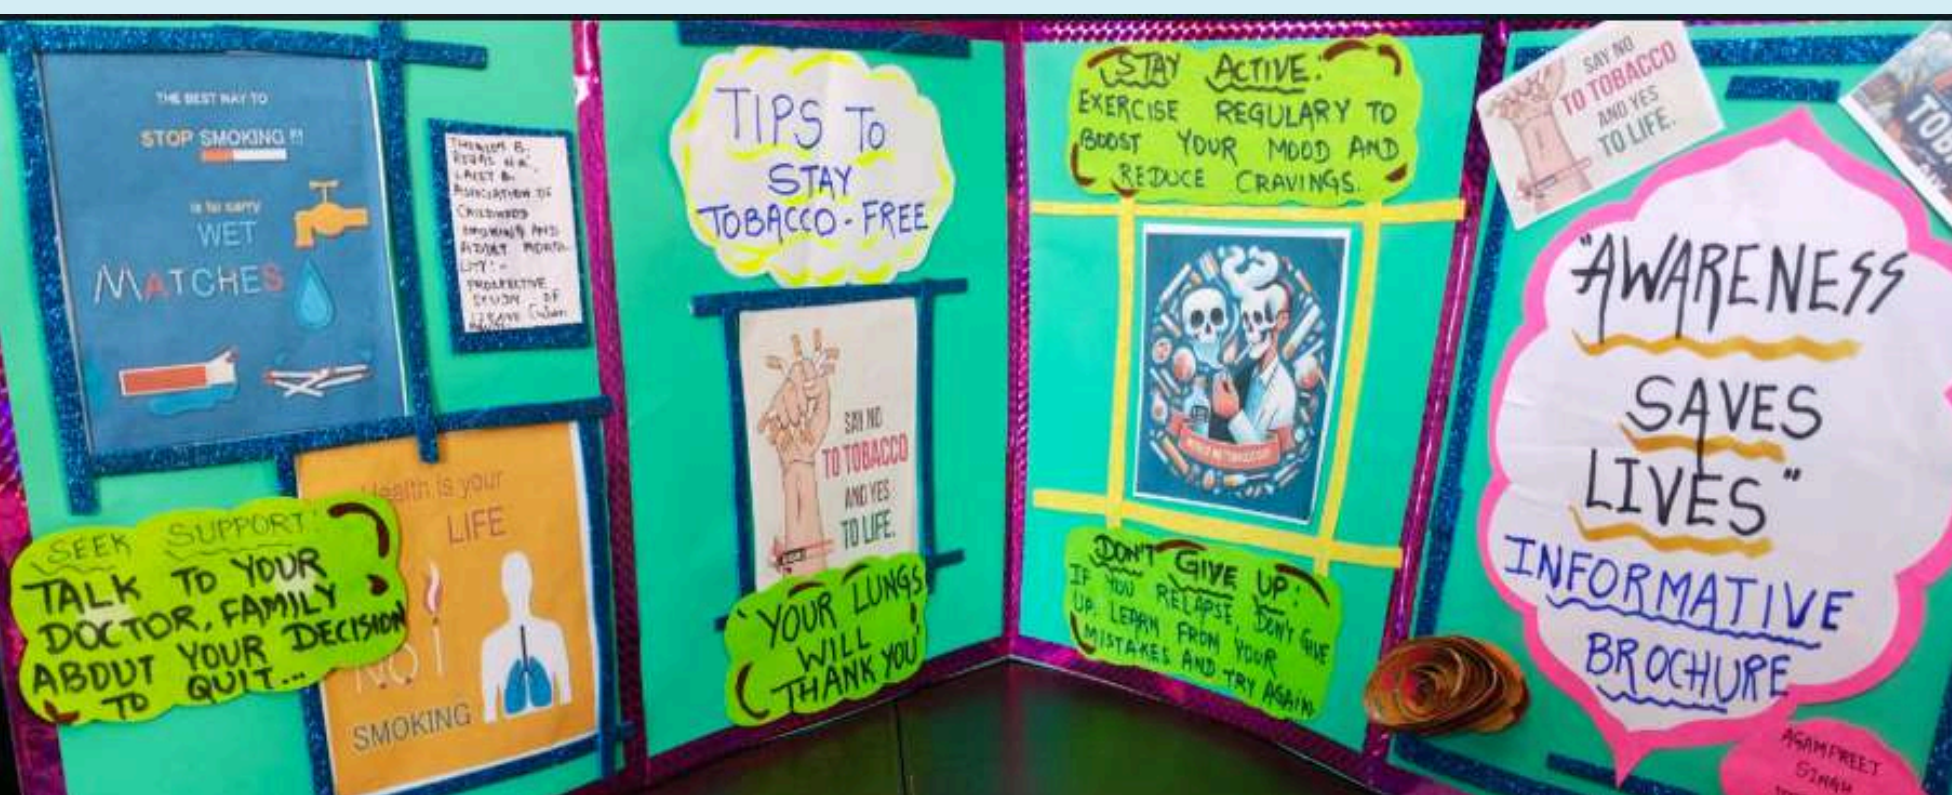 THE BEST WAY TO
STOP SMOKING !!!
is to carry
WET
MATCHES
THOMSON B.
LACEY B.
ASSOCIATION OF
CHILDHOOD
SMOKING AND
ADULT
PROSPECTIVE
STUDY OF
SEEK SUPPORT:
TALK TO YOUR
DOCTOR, FAMILY
ABOUT YOUR DECISION
TO QUIT...
Health is your
LIFE
NO!
SMOKING
TIPS TO
STAY
TOBACCO-FREE
SAY NO
TO TOBACCO
AND YES
TO LIFE.
"YOUR LUNGS
WILL
THANK YOU"
STAY ACTIVE.
EXERCISE REGULARY TO
BOOST YOUR MOOD AND
REDUCE CRAVINGS.
DON'T GIVE UP:
IF YOU RELAPSE, DON'T GIVE
UP, LEARN FROM YOUR
MISTAKES AND TRY AGAIN
SAY NO
TO TOBACCO
AND YES
TO LIFE.
"AWARENESS
SAVES
LIVES"
INFORMATIVE
BROCHURE
AGAMPREET
SINGH